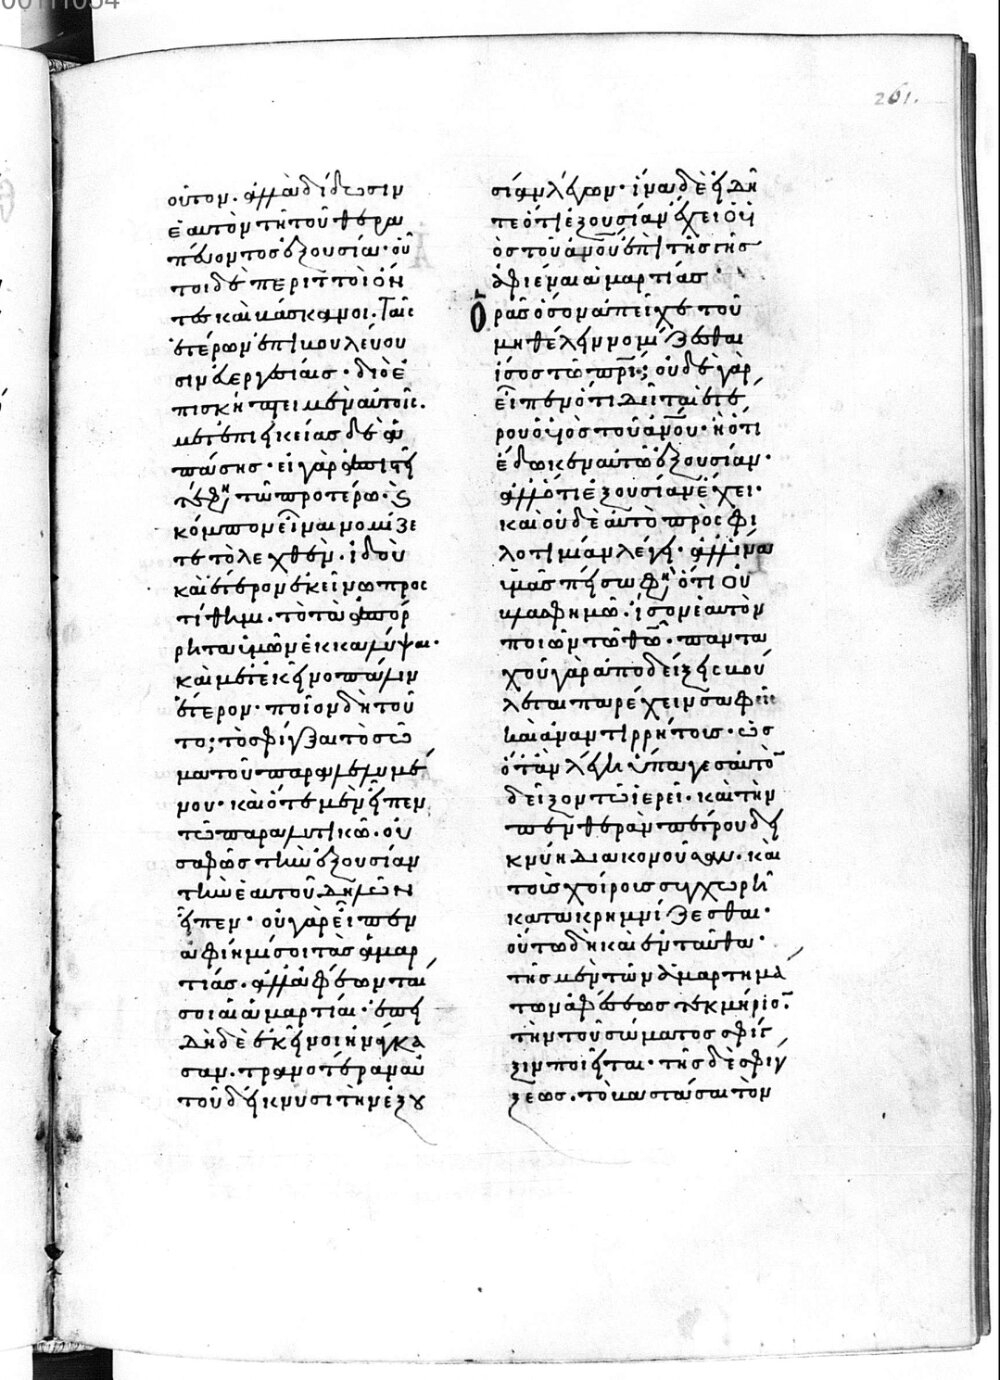 οῦτον. ἀλλὰ δίδωσιν
ἑαυτὸν τῆ τοῦ θερα
πεύοντος ἐξουσία. οὗ
τοι δὲ περιττοὶ ὄν
τες καὶ βάσκανοι. Ταῖς
ἑτέρων ἐπιβουλεύου
σιν εὐεργεσίαις. διὸ ἐ
πισκήπτει μὲν αὐτοῖς.
μετ ἐπιεικείας δὲ ἁ
πάσης. εἰ γὰρ ἀπιστεῖ
τέ φη τῶ προτέρω. κ
κόμπον εἶναι νομίζε
τε τὸ λεχθὲν. ἰδοὺ
καὶ ἕτερον ἐκείνω προς
τίθημι. τὸ τὰ ἀπόρ
ρητα ὑμῶν ἐκκαλύψαι.
καὶ μετ ἐκεῖνο πάλιν
ἕτερον. ποῖον δὴ τοῦ
το; τὸ σφίγξαι τὸ σῶ
μα τοῦ παραλελυμέ
νου. καὶ ὅτε μὲν εἶπεν
τῶ παραλυτικῶ. οὐ
σαφῶς τὴν ἐξουσίαν
τὴν ἑαυτοῦ δηλῶν
εἶπεν. οὐ γὰρ εἶπεν
ἀφίημί σοι τὰς ἁμαρ
τίας. ἀλλ ἀφέωνταί
σοι αἱ ἁμαρτίαι. ἐπει
δὴ δὲ ἐκεῖνοι ἠνάγκα
σαν. τρανοτέραν αὑ
τοῦ δείκνυσι τὴν ἐξου
σίαν λέγων. ἵνα δὲ εἰδῆ
τε ὅτι ἐξουσίαν ἔχει ὁ υἱ
ὸς τοῦ ἀνου ἐπὶ τῆς γῆς
ἀφιέναι ἁμαρτίας.
Ὁρᾶς ὅσον ἀπεῖχε τοῦ
μὴ θέλειν νομίζεσθαι
ἴσος τῶ πρι; οὐδὲ γὰρ
εἶπεν ὅτι δεῖται ἑτέ
ρου ὁ υἱὸς τοῦ ἀνου. ἢ ὅτι
ἔδωκεν αὐτῶ ἐξουσίαν.
ἀλλ ὅτι ἐξουσίαν ἔχει.
καὶ οὐδὲ αὐτὸ πρὸς φι
λοτιμίαν λέγει. ἀλλ ἵνα
ὑμᾶς πείσω φη ὅτι οὐ
βλασφημῶ. ἴσον ἐμαυτὸν
ποιῶν τῶ θω. πάντα
χοῦ γὰρ ἀποδείξεις βού
λεται παρέχειν σαφεῖς
καὶ ἀναντιρρήτους. ὡς
ὅταν λέγη ὕπαγε σαυτὸν
δεῖξον τῶ ἱερεῖ. καὶ τὴν
πενθερὰν πέτρου δεί
κνυ διακονοῦσαν. καὶ
τοῖς χοίροις συγχωρῆ
κατακρημνίζεσθαι.
οὕτω δὴ καὶ ἐνταῦθα.
τῆς μὲν τῶν ἁμαρτημά
των ἀφέσεως τεκμήριον.
τὴν τοῦ σώματος σφίγ
ξιν ποιεῖται. τῆς δὲ σφίγ
ξεως. τὸ βαστάσαι τὸν